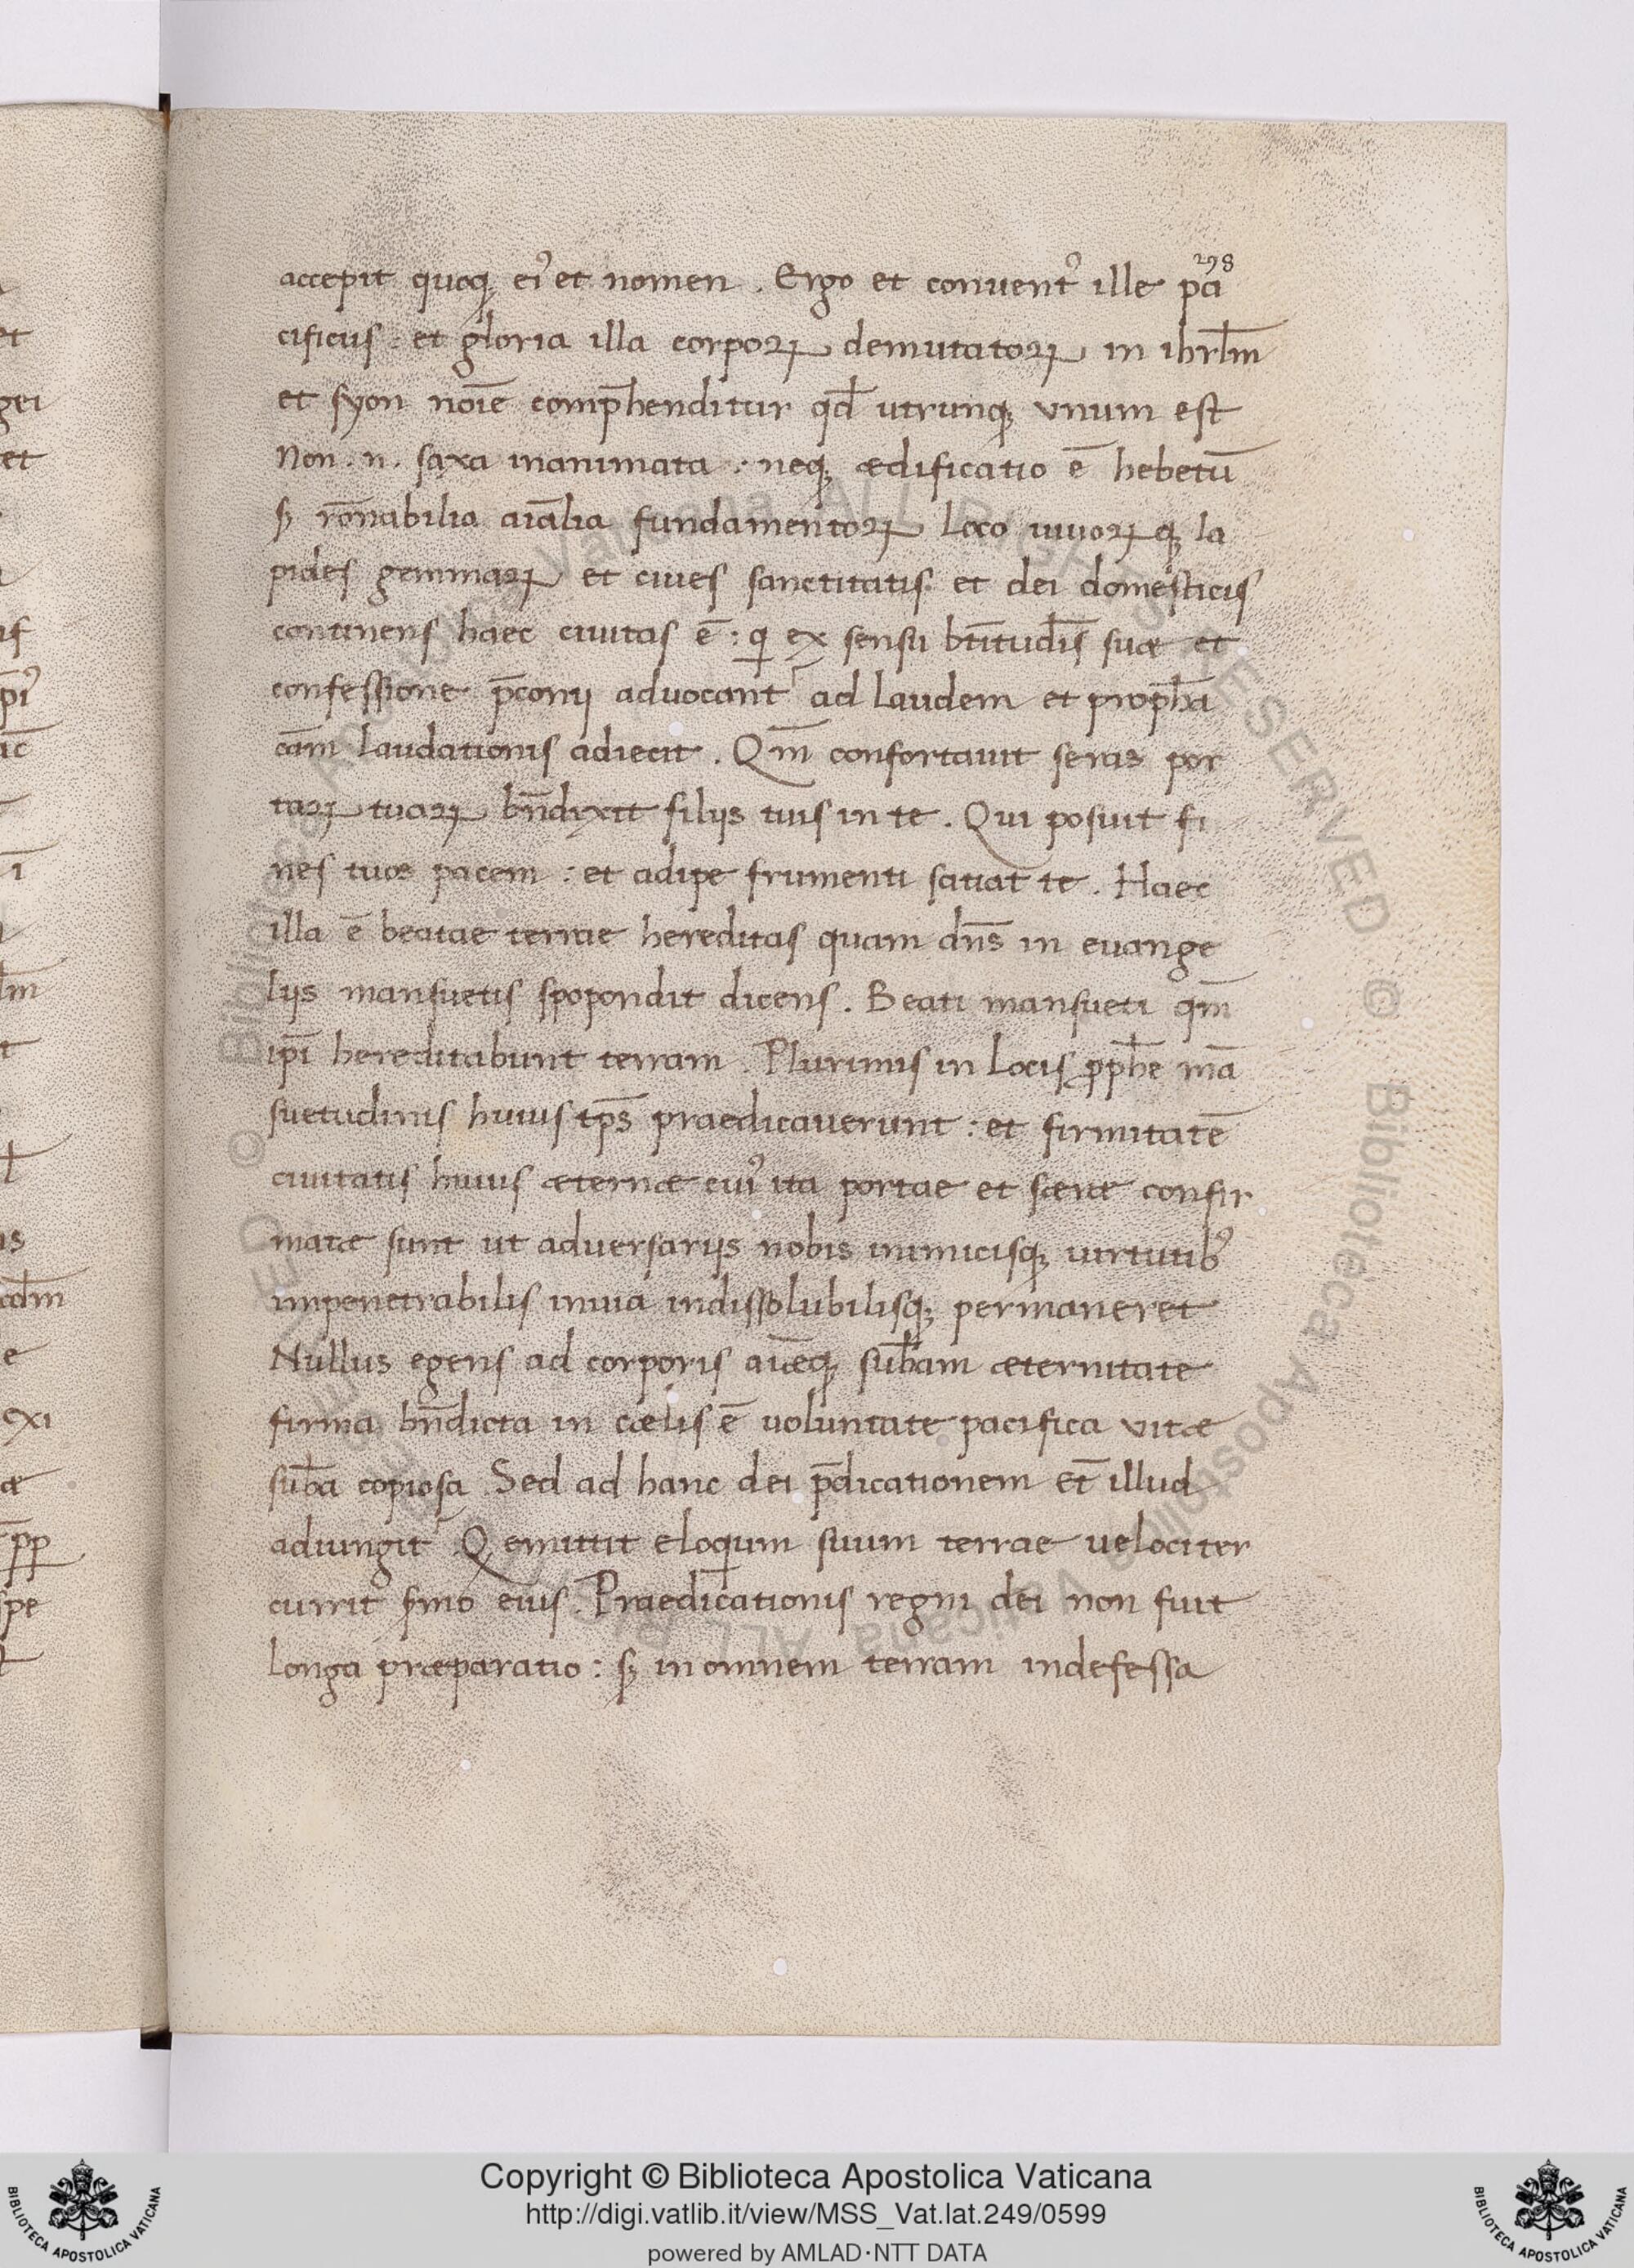 298
accepit quoq; eiꝰ et nomen . Ergo et conuentꝰ ille pa
cificus : et gloria illa corpoꝝ demutatoꝝ in ihrl̄m
et syon noīe comp̄henditur qd̄ utrunq; unum est
Non . n . saxa inanimata : neq; ædificatio ē hebetū
sꝫ rōnabilia aīalia fundamentoꝝ loco uiuoꝝq; la
pides gemmaꝝ et ciues sanctitatis et dei domesticis
continens haec ciuitas ē : q ex sensu btītudīs suæ et
confessione p̄conij aduocant ad laudem et proph̄a
cām laudationis adiecit . Qm̄ confortauit seras por
taꝝ tuaꝝ bn̄dixit filijs tuis in te . Qui posuit fi
nes tuos pacem : et adipe frumenti satiat te . Haec
illa ē beatae terrae hereditas quam dn̄s in euange
lijs mansuetis spopondit dicens . Beati mansueti qm̄
ip̄i hereditabunt terram . Plurimis in locis ꝓph̄e mā
suetudinis huius tp̄s praedicauerunt : et firmitatē
ciuitatis huius æternæ cuiꝰ ita portae et særæ confir
matæ sunt ut aduersarijs nobis inimicisq; uirtutibꝰ
impenetrabilis inuia indissolubilisq; permaneret
Nullus egens ad corporis aīeq; sub̄am æternitate
firma bn̄dicta in cælis ē uoluntate pacifica vitæ
sub̄a copiosa Sed ad hanc dei p̄dicationem et̄ illud
adiungit Q emittit eloqium suum terrae uelociter
currit sꝫmo eius . Praedicationis regni dei non fuit
longa præparatio : sꝫ in omnem terram indefessa
Copyright © Biblioteca Apostolica Vaticana
http://digi.vatlib.it/view/MSS_Vat.lat.249/0599
powered by AMLAD·NTT DATA